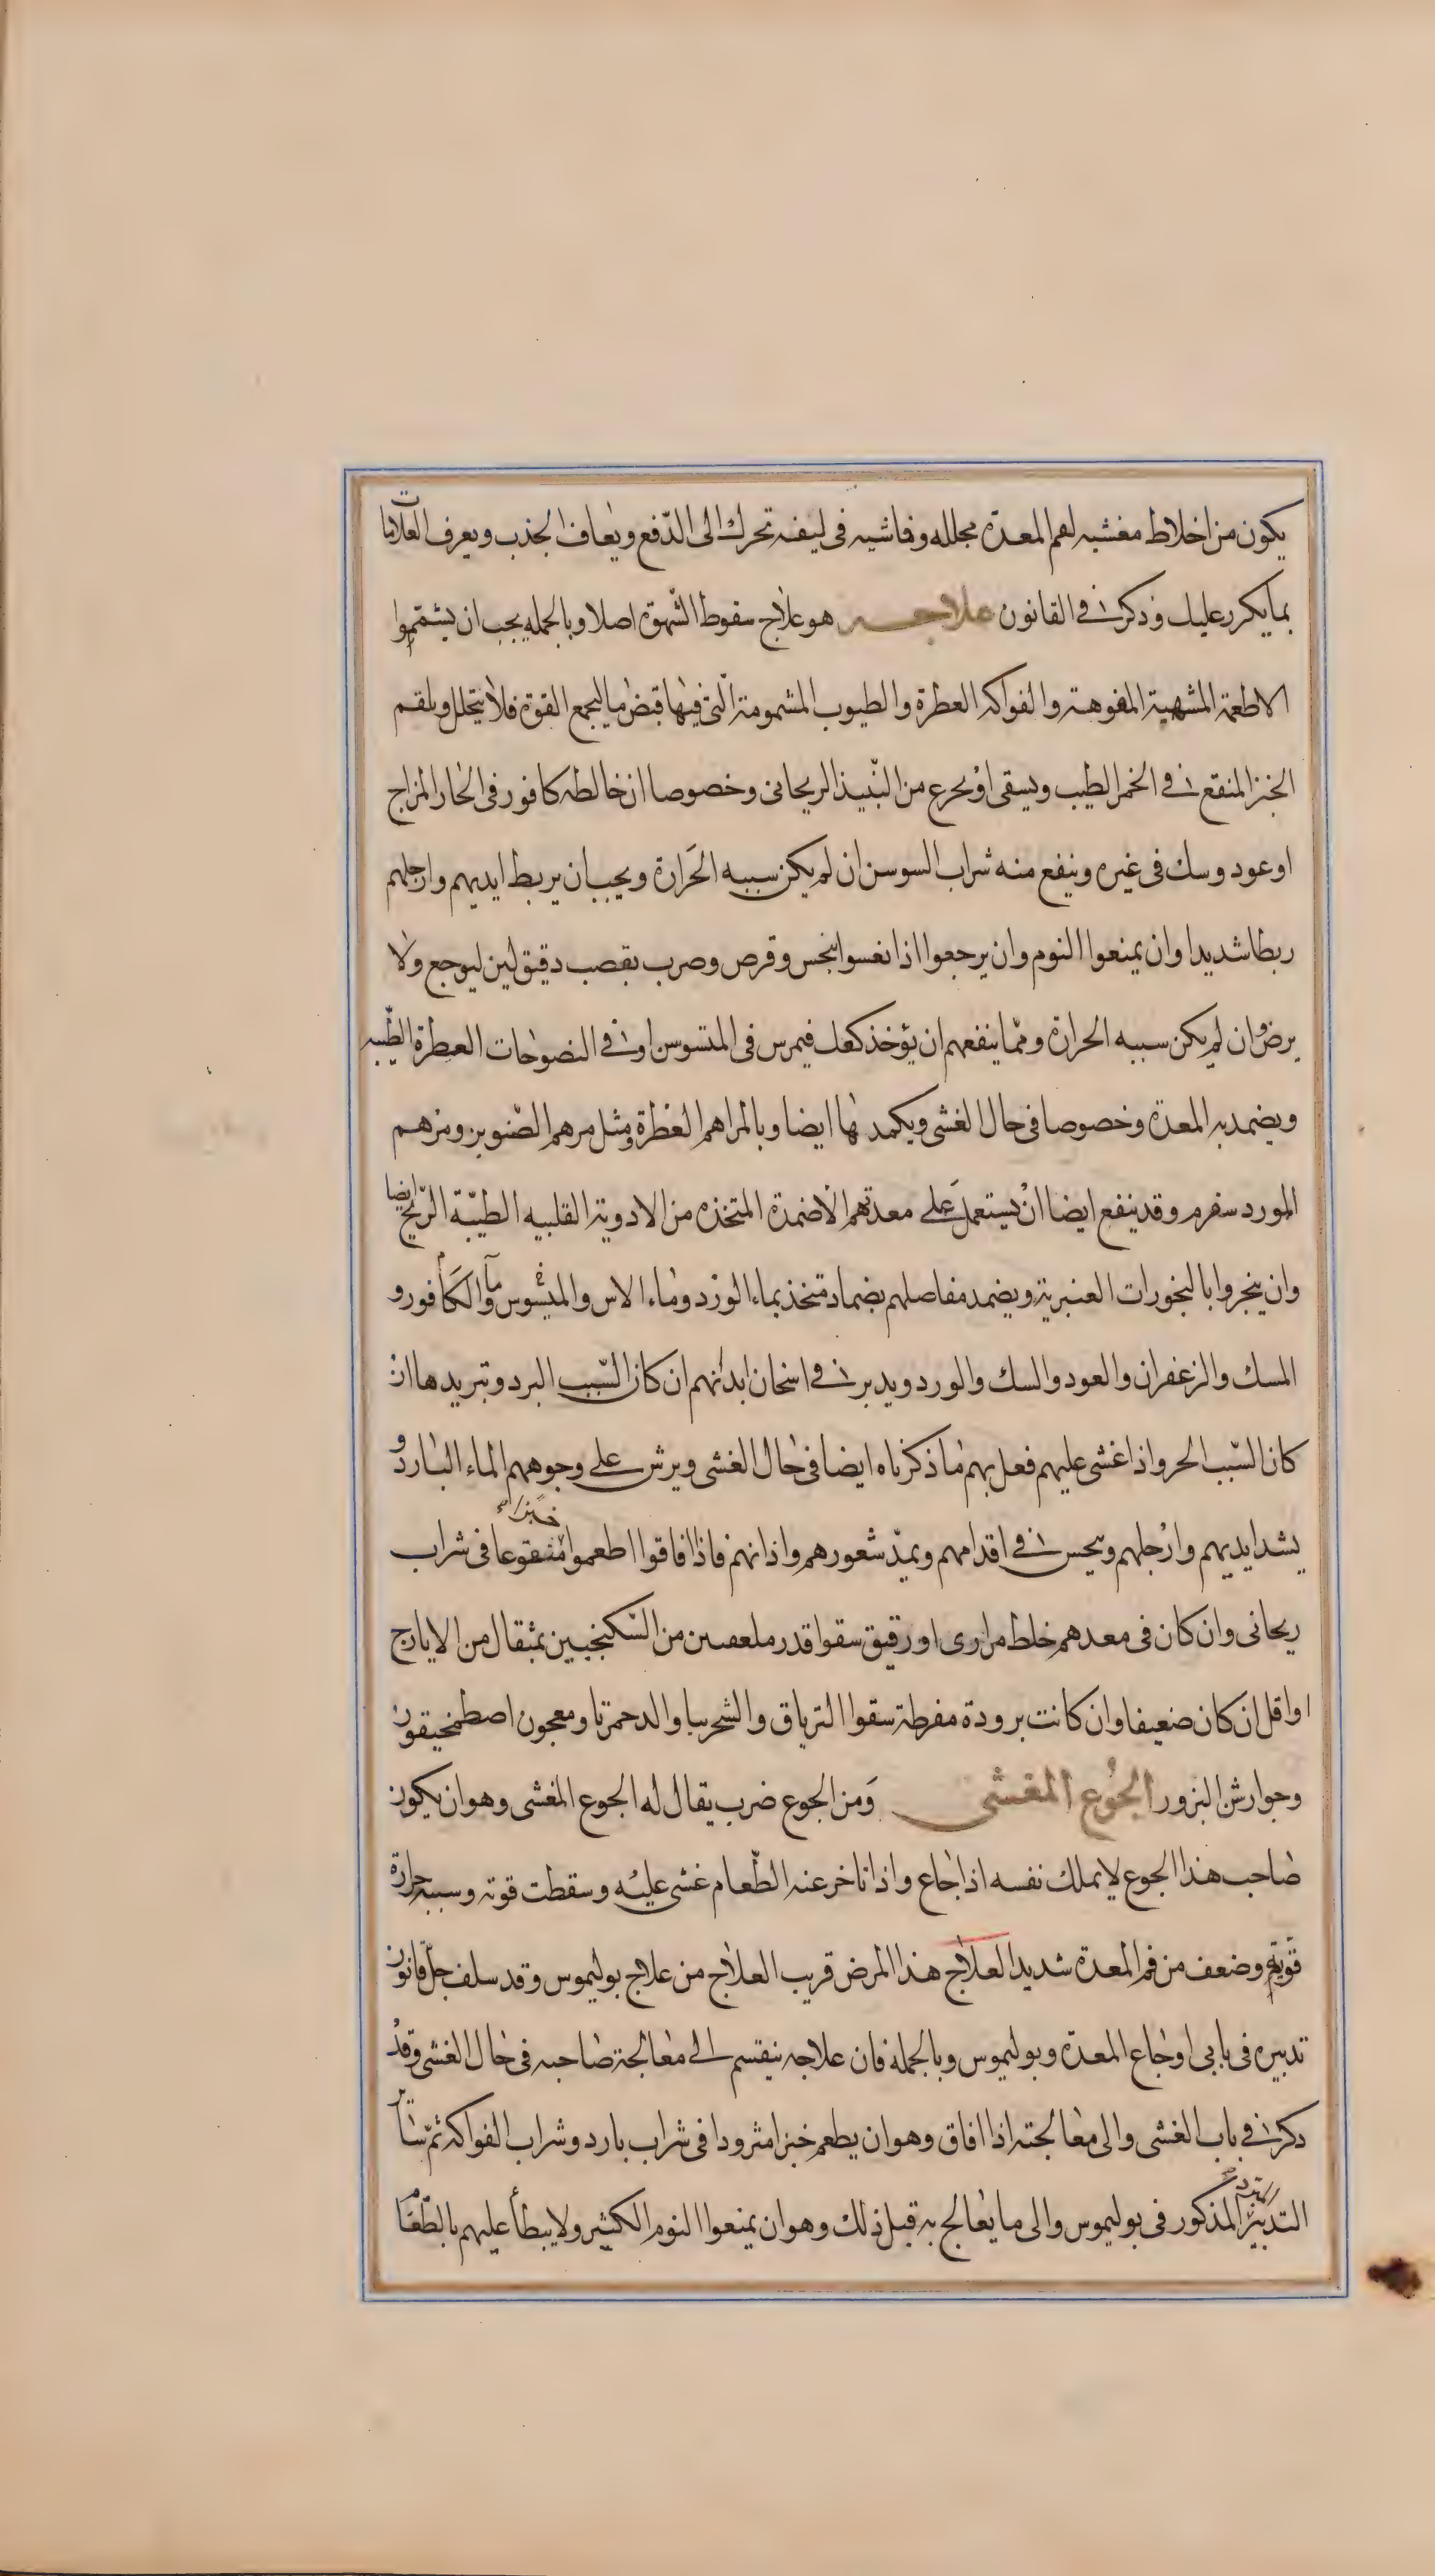 يكون من اخلاط مغشيه لفم المعدة مجلله وفاشيه فى ليفه تحرك الى الدّفع ويعاف الجذب ويعرف العلامات
بما يكرر عليك وذكر فى القانون علاجه هو علاج سقوط الشهوة اصلا وبالجمله يجب ان يشتمموا
الاطعمة المشهية المفوهة والفواكه العطرة والطيوب المشمومة الّتى فيها قبض ما ليجمع القوة فلا يتحلل ويلقم
الخبز المنقع فى الخمر الطيب ويسقى او يجرع من النّبيذ الريحانى وخصوصا ان خالطه كافور فى الحار المزاج
او عود وسك فى غيره وينفع منه شراب السوسن ان لم يكن سببه الحَرارة ويجب ان يربط ايديهم وارجلهم
ربطا شديدا وان يمنعوا النوم وان يرجعوا اذا نعسوا بنخس وقرص وضرب بقصب دقيق لين ليوجع ولا
يرض وان لم يكن سببه الحرارة وممّا ينفعهم ان يؤخذ كعك فيمرس فى الميسوسن او فى النضوحات العطرة الطيّبه
ويضمد به المعدة وخصوصا فى حال الغشى ويكمد بها ايضا وبالمراهم العطرة ومثل مرهم الصّنوبر ومرهم
المورد سفرم وقد ينفع ايضا انْ يستعمل عَلى معدتهم الاضمدة المتخذه من الادوية القلبيه الطيّبة الرّيح ايضا
وان يبخروا بالبخورات العنبرية ويضمد مفاصلهم بضماد متخذ بماء الورد وماء الاس والميسوس ماء والكافور و
المسك والزعفران والعود والسك والورد ويدبر فى اسخان ابدانهم ان كان السّبب البرد وتبريدها ان
كان السّبب الحر واذا غشى عليهم فعل بهم ما ذكرناه ايضا فى حال الغشى ويرش على وجوههم الماء البارد و
يشد ايديهم وارجلهم وينخس فى اقدامهم ويمدّ شعورهم واذانهم فاذا افاقوا اطعموا خبزا منقوعا فى شراب
ريحانى وان كان فى معدهم خلط مرارى او رقيق سقوا قدر ملعقتين من السّكنجبين بمثقال من الايارج
او اقل ان كان ضعيفا وان كانت برودة مفرطة سقوا الترياق والشجرينا والدحمرثا ومعجون اصطمخيقون
وجوارش البزور الجُوع المغشى وَمن الجوع ضرب يقال له الجوع المغشى وهو ان يكون
صاحب هذا الجوع لا يملك نفسه اذا جاع واذا تاخر عنه الطّعام غشى عليه وسقطت قوته وسببه حرارة
قويّة وضعف من فم المعدة شديد العلاج هذا المرض قريب العلاج من علاج بوليموس وقد سلف جلّ قانون
تدبيره فى بابى اوجاع المعدة وبوليموس وبالجمله فان علاجه ينقسم الى معالجة صاحبه فى حال الغشى وقد
ذكر فى باب الغشى والى معالجته اذا افاق وهو ان يطعم خبزا مثرودا فى شراب بارد وشراب الفواكه ثمّ سائر
التدبير المذكور فى بوليموس والى ما يعالج به قبل ذلك وهو ان يمنعوا النوم الكثير ولا يبطأ عليهم بالطّعام